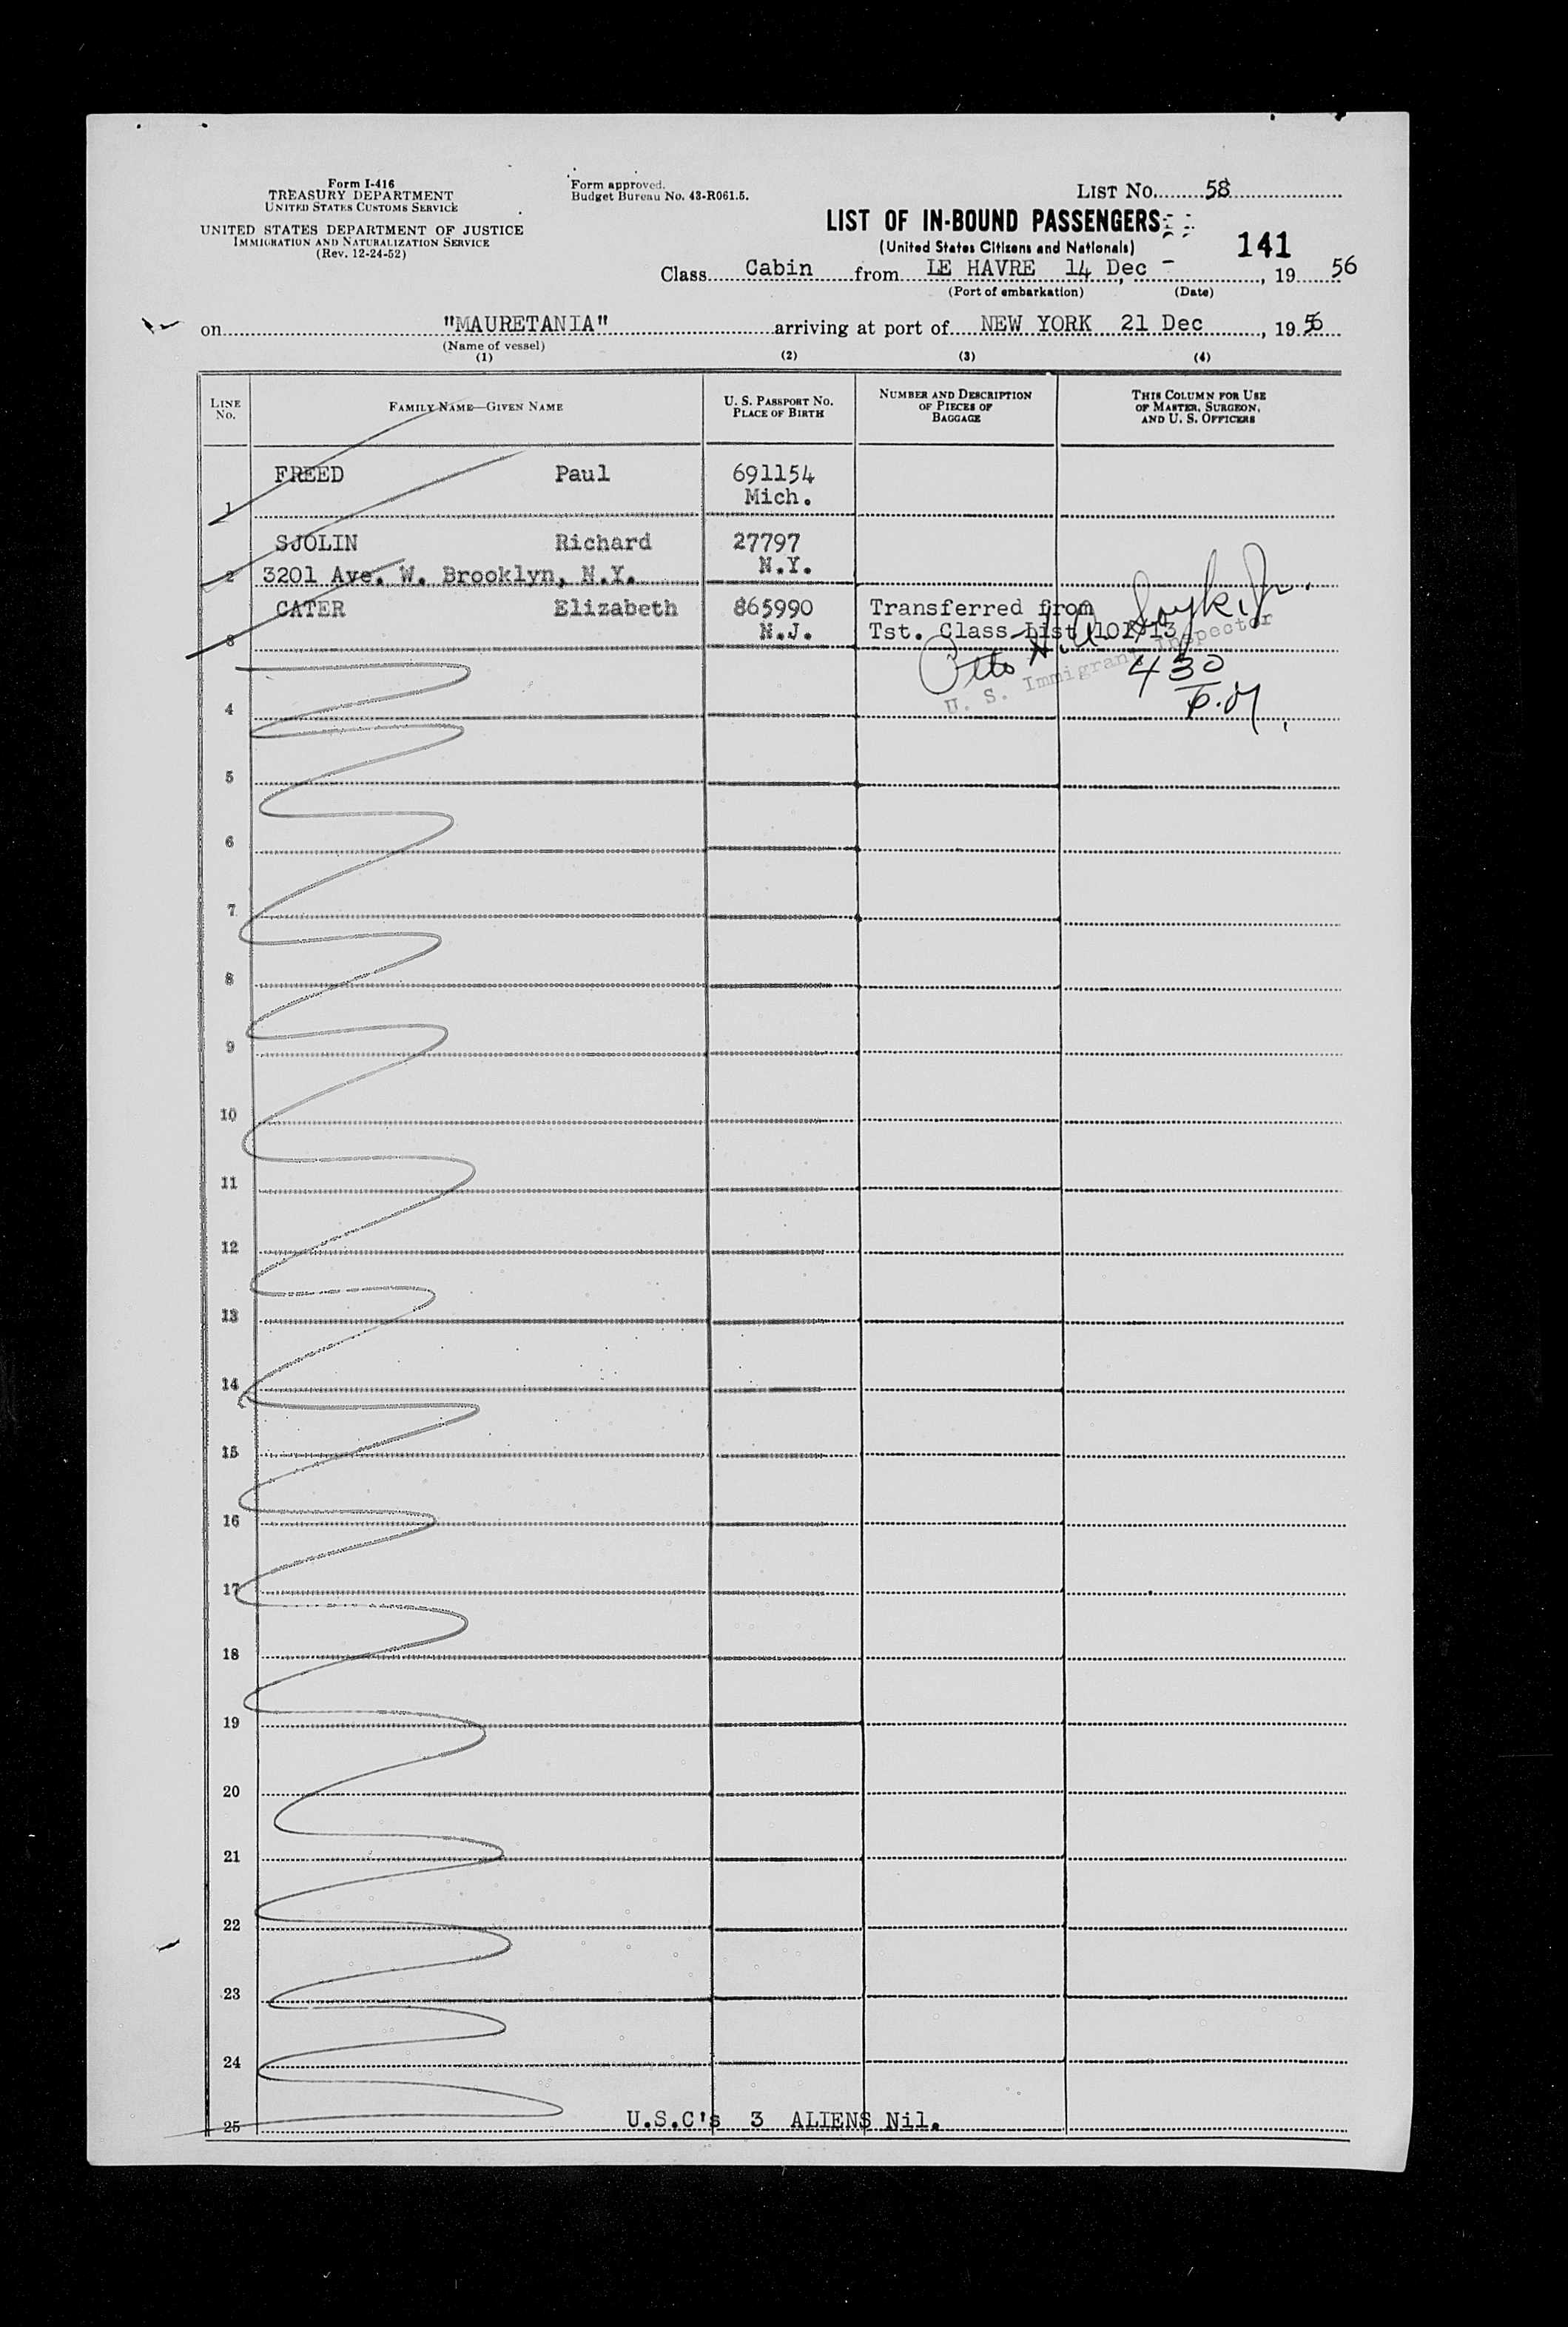 Form I-416
TREASURY DEPARTMENT
UNITED STATES CUSTOMS SERVICE
UNITED STATES DEPARTMENT OF JUSTICE
IMMIGRATION AND NATURALIZATION SERVICE
(Rev. 12-24-52)
Form approved.
Budget Bureau No. 43-R061.5.
LIST NO. 58
LIST OF IN-BOUND PASSENGERS
(United States Citizens and Nationals)
141
Class Cabin from LE HAVRE 14 Dec - , 19 56
(Port of embarkation) (Date)
on "MAURETANIA" arriving at port of NEW YORK 21 Dec , 19 56
(Name of vessel)
(1) (2) (3) (4)
LINE NO. FAMILY NAME—GIVEN NAME U. S. PASSPORT NO. PLACE OF BIRTH NUMBER AND DESCRIPTION OF PIECES OF BAGGAGE THIS COLUMN FOR USE OF MASTER, SURGEON, AND U. S. OFFICERS
FREED Paul 691154
1 Mich.
SJOLIN Richard 27797
2 3201 Ave. W. Brooklyn, N.Y. N.Y.
CATER Elizabeth 865990 Transferred from
3 N.J. Tst. Class List 101/13
Otto
U. S. Immigrant Inspector
430
4
5
6
7
8
9
10
11
12
13
14
15
16
17
18
19
20
21
22
23
24
25 U.S.C's 3 ALIENS Nil.